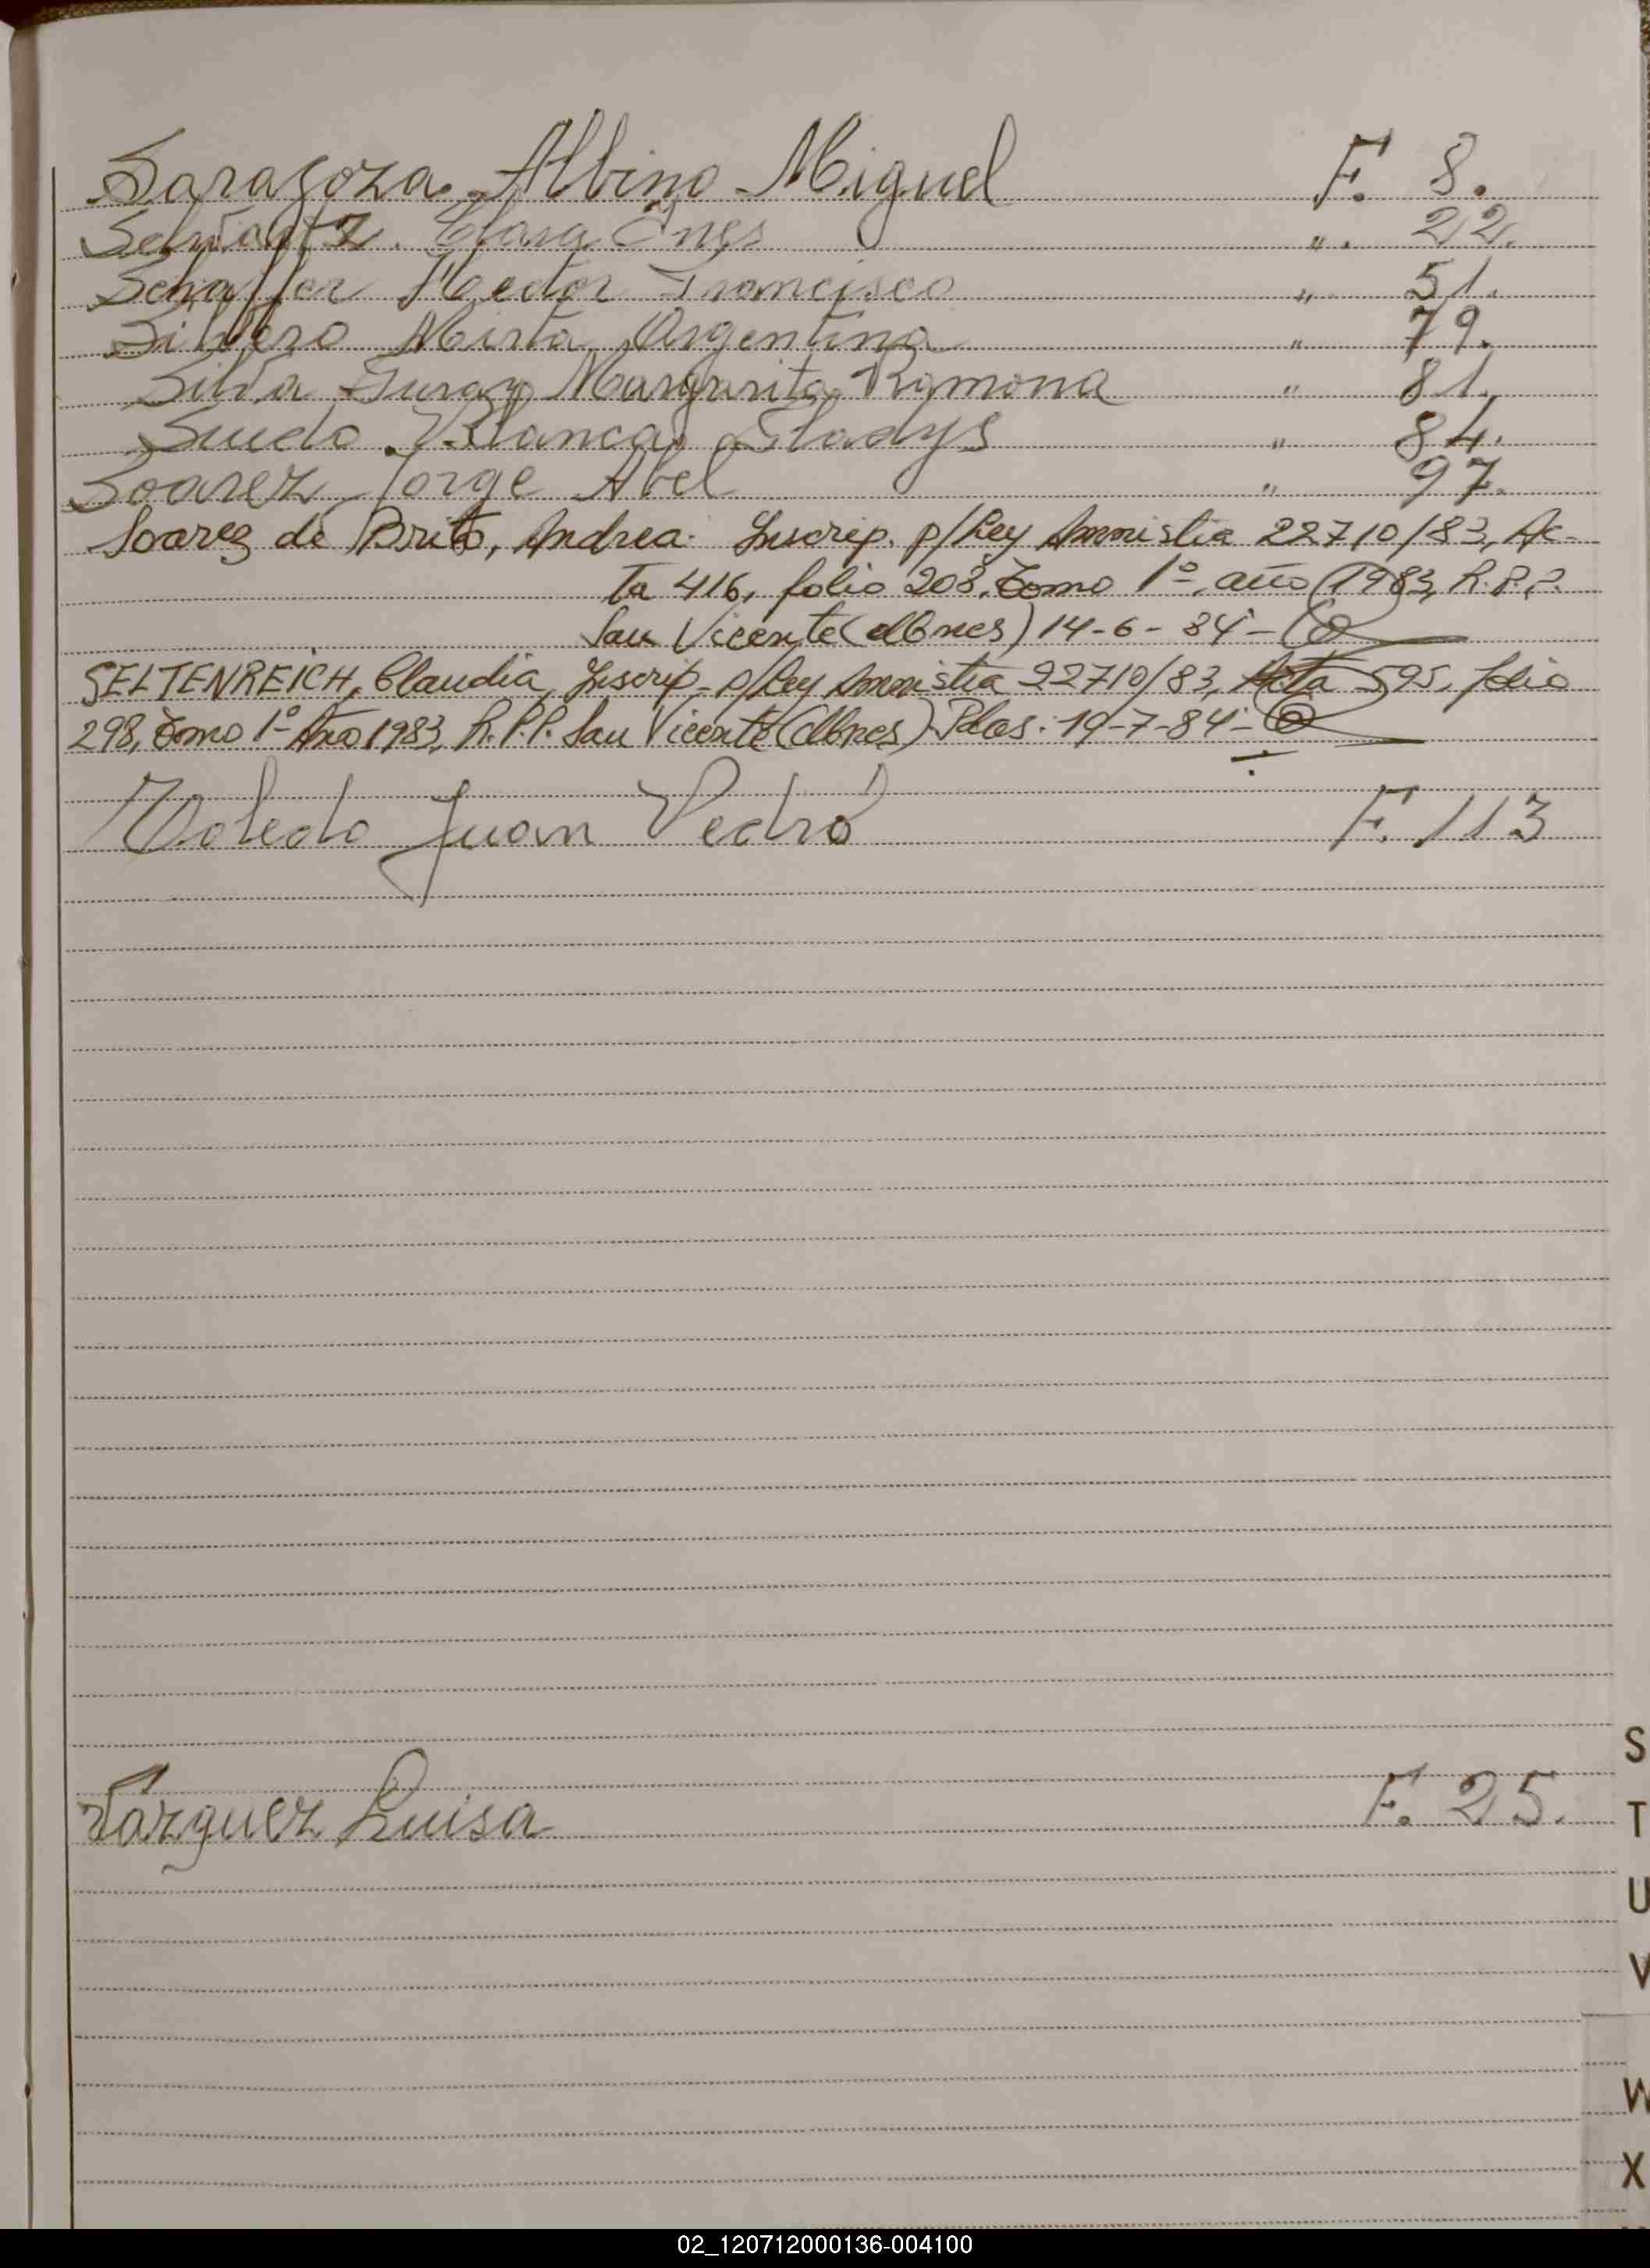 Saragoza Albino Miguel F. 8.
Schwartz Clara Ines " . 22.
Schaffer Hector Francisco " 51.
Silvero Mirta Argentina " 79.
Silva Margarita Ramona " 81.
Suedo Blanca Gladys " 84.
Soarez Jorge Abel " 97.
Soarez de Brito, Andrea. Inscrip. p/Ley Amnistia 22710/83, Ac-
ta 416, folio 208, Tomo 1º año 1983, R.P.P.
San Vicente (Mnes) 14-6-84-
SELTENREICH, Claudia, Inscrip. p/Ley Amnistia 22710/83, Acta 595, folio
298, Tomo 1º Año 1983, R.P.P. San Vicente (Mnes) Pdas: 19-7-84-
Toledo Juan Pedro F. 113
Vázquez Luisa F. 25.
S
T
U
V
W
X
02_120712000136-004100